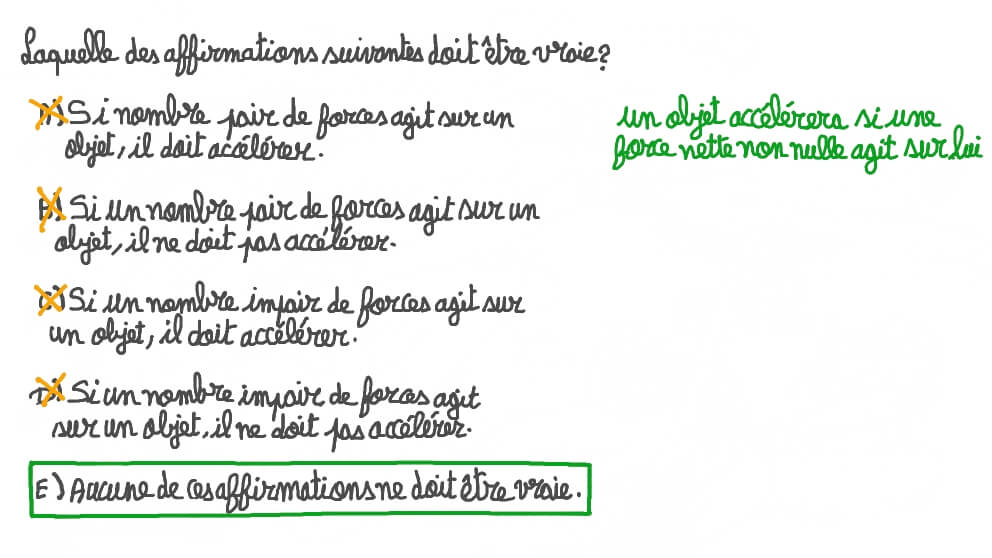 Laquelle des affirmations suivantes doit être vraie?
A) Si nombre pair de forces agit sur un
un objet accélérera si une
objet, il doit accélérer.
force nette non nulle agit sur lui
B) Si un nombre pair de forces agit sur un
objet, il ne doit pas accélérer.
C) Si un nombre impair de forces agit sur
un objet, il doit accélérer.
D) Si un nombre impair de forces agit
sur un objet, il ne doit pas accélérer.
E) Aucune de ces affirmations ne doit être vraie.